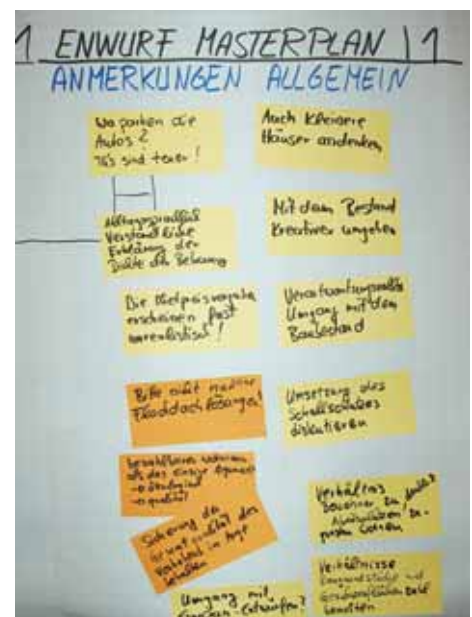 1 ENWURF MASTERPLAN | 1
ANMERKUNGEN ALLGEMEIN
Wo parken die
Autos?
TG's sind teuer!
Auch kleinere
Häuser andenken
Verständliche
Erklärung der
Dichte der Bebauung
Mit dem Bestand
kreativer umgehen
Die Mietpreisvorgabe
erscheinen fast
unrealistisch!
Verantwortungsvolle
Umgang mit dem
Baubestand
Bitte nicht
Flachdachlösungen!
Umsetzung des
Schallschutzes
diskutieren
bezahlbares wohnen
als das einzige
→ ökologisch
→ qualität
Sicherung der
qualität des
im Auge
behalten
Verhältnis
Bewohner zu
Verhältnisse
und
Geschossflächen
bewerten
Umgang mit
Entwürfen?